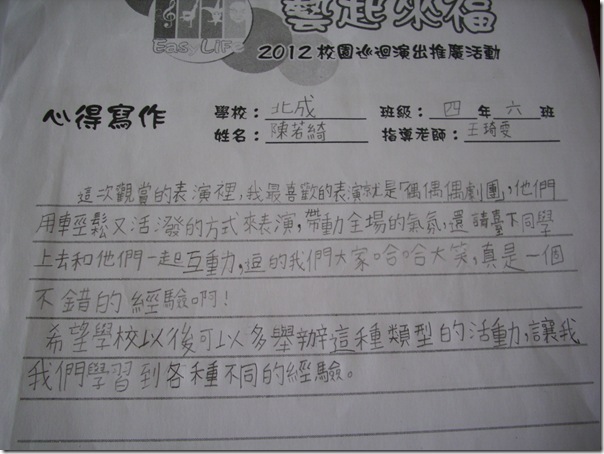 藝起來福
Easy LiFe
2012校園巡迴演出推廣活動
心得寫作 學校：北成 班級：四年六班
姓名：陳若綺 指導老師：王琦雯
這次觀賞的表演裡，我最喜歡的表演就是「偶偶偶劇團」，他們
用輕鬆又活潑的方式來表演，帶動全場的氣氛，還請臺下同學
上去和他們一起互動力，逗的我們大家哈哈大笑，真是一個
不錯的經驗啊！
希望學校以後可以多舉辦這種類型的活動力，讓我
我們學習到各種不同的經驗。